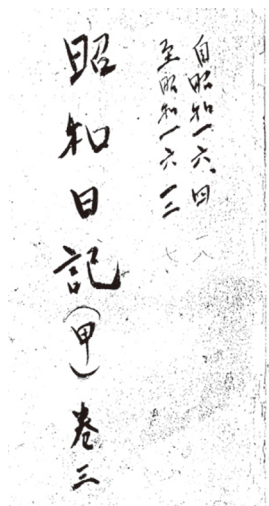 自昭和一六、四
至昭和一六、一二
昭和日記（甲）巻三